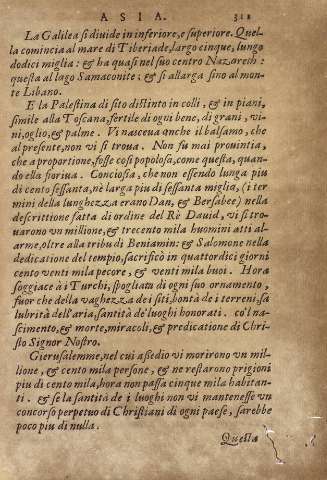 ASIA. 318
La Galilea si diuide in inferiore, e superiore. Quel
la comincia al mare di Tiberiade, largo cinque, lungo
dodici miglia: & ha quasi nel suo centro Nazareth:
questa al lago Samaconite: & si allarga sino al mon
te Libano.
E la Palestina di sito distinto in colli, & in piani,
simile alla Toscana, fertile di ogni bene, di grani, vi-
ni, oglio, & palme. Vi nasceua anche il balsamo, che
al presente, non vi si troua. Non fu mai prouintia,
che a proportione, fosse cosi popolosa, come questa, quan-
do ella fioriua. Conciosia, che non essendo lunga piu
di cento sessanta, nè larga piu di sessanta miglia, (i ter
mini della lunghezza erano Dan, & Bersabee) nella
descrittione fatta di ordine del Rè Dauid, vi si tro-
uarono vn millione, & trecento mila huomini atti al-
l'arme, oltre alla tribu di Beniamin: & Salomone nella
dedicatione del tempio, sacrificò in quattordici giorni
cento venti mila pecore, & venti mila buoi. Hora
soggiace à i Turchi, spogliata di ogni suo ornamento,
fuor che della vaghezza de i siti, bontà de i terreni, sa
lubrità dell'aria, santità de' luoghi honorati. co'l na-
scimento, & morte, miracoli, & predicatione di Chri-
sto Signor Nostro.
Gierusalemme, nel cui assedio vi morirono vn mil-
lione, & cento mila persone, & ne restarono prigioni
piu di cento mila, hora non passa cinque mila habitan-
ti. & se la santità de i luoghi non vi mantenesse vn
concorso perpetuo di Christiani di ogni paese, sarebbe
poco piu di nulla.
Quella